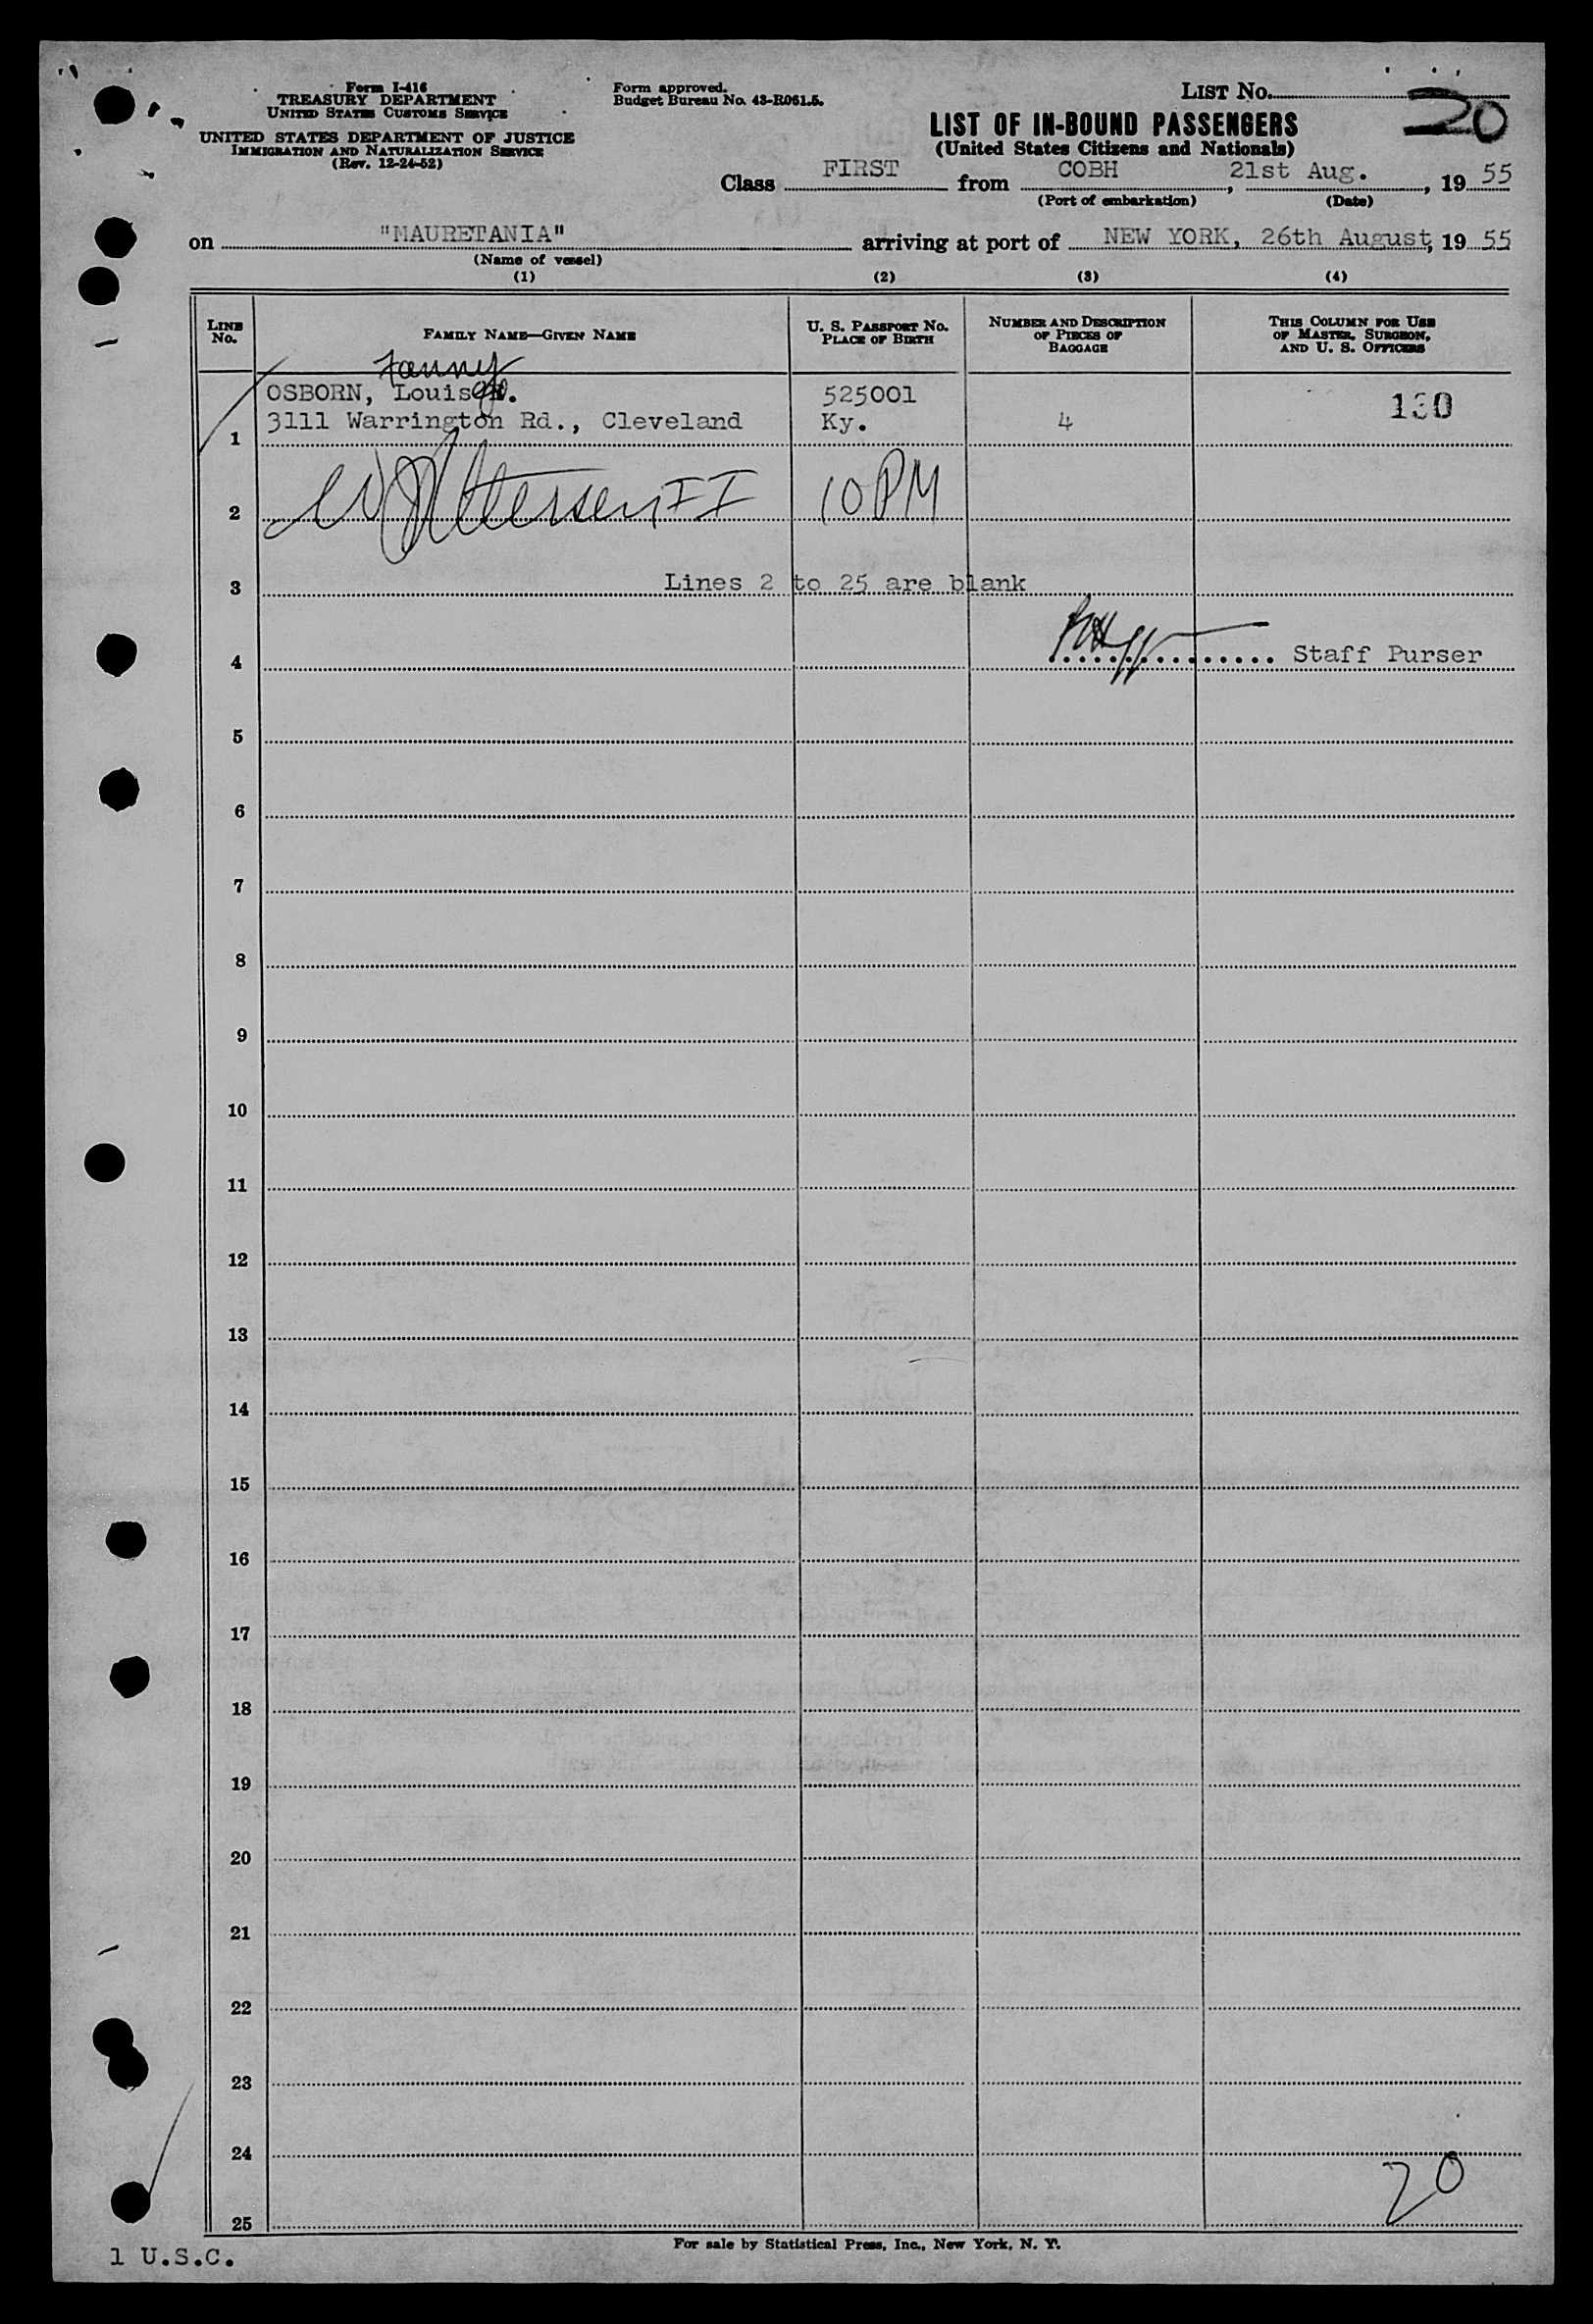 Form I-416
TREASURY DEPARTMENT
UNITED STATES CUSTOMS SERVICE
UNITED STATES DEPARTMENT OF JUSTICE
IMMIGRATION AND NATURALIZATION SERVICE
(Rev. 12-24-52)
Form approved.
Budget Bureau No. 43-R061.5.
LIST No. 20
LIST OF IN-BOUND PASSENGERS
(United States Citizens and Nationals)
Class FIRST from COBH, 21st Aug., 19 55
(Port of embarkation) (Date)
on "MAURETANIA" arriving at port of NEW YORK, 26th August, 19 55
(Name of vessel)
(1) (2) (3) (4)
LINE No. FAMILY NAME—GIVEN NAME U. S. PASSPORT NO. PLACE OF BIRTH NUMBER AND DESCRIPTION OF PIECES OF BAGGAGE THIS COLUMN FOR USE OF MASTER, SURGEON, AND U. S. OFFICERS
Fanny
OSBORN, Louis 525001 130
1 3111 Warrington Rd., Cleveland Ky. 4
2 10 PM
3 Lines 2 to 25 are blank
4 Staff Purser
5
6
7
8
9
10
11
12
13
14
15
16
17
18
19
20
21
22
23
24
20
25
For sale by Statistical Press, Inc., New York, N. Y.
1 U.S.C.